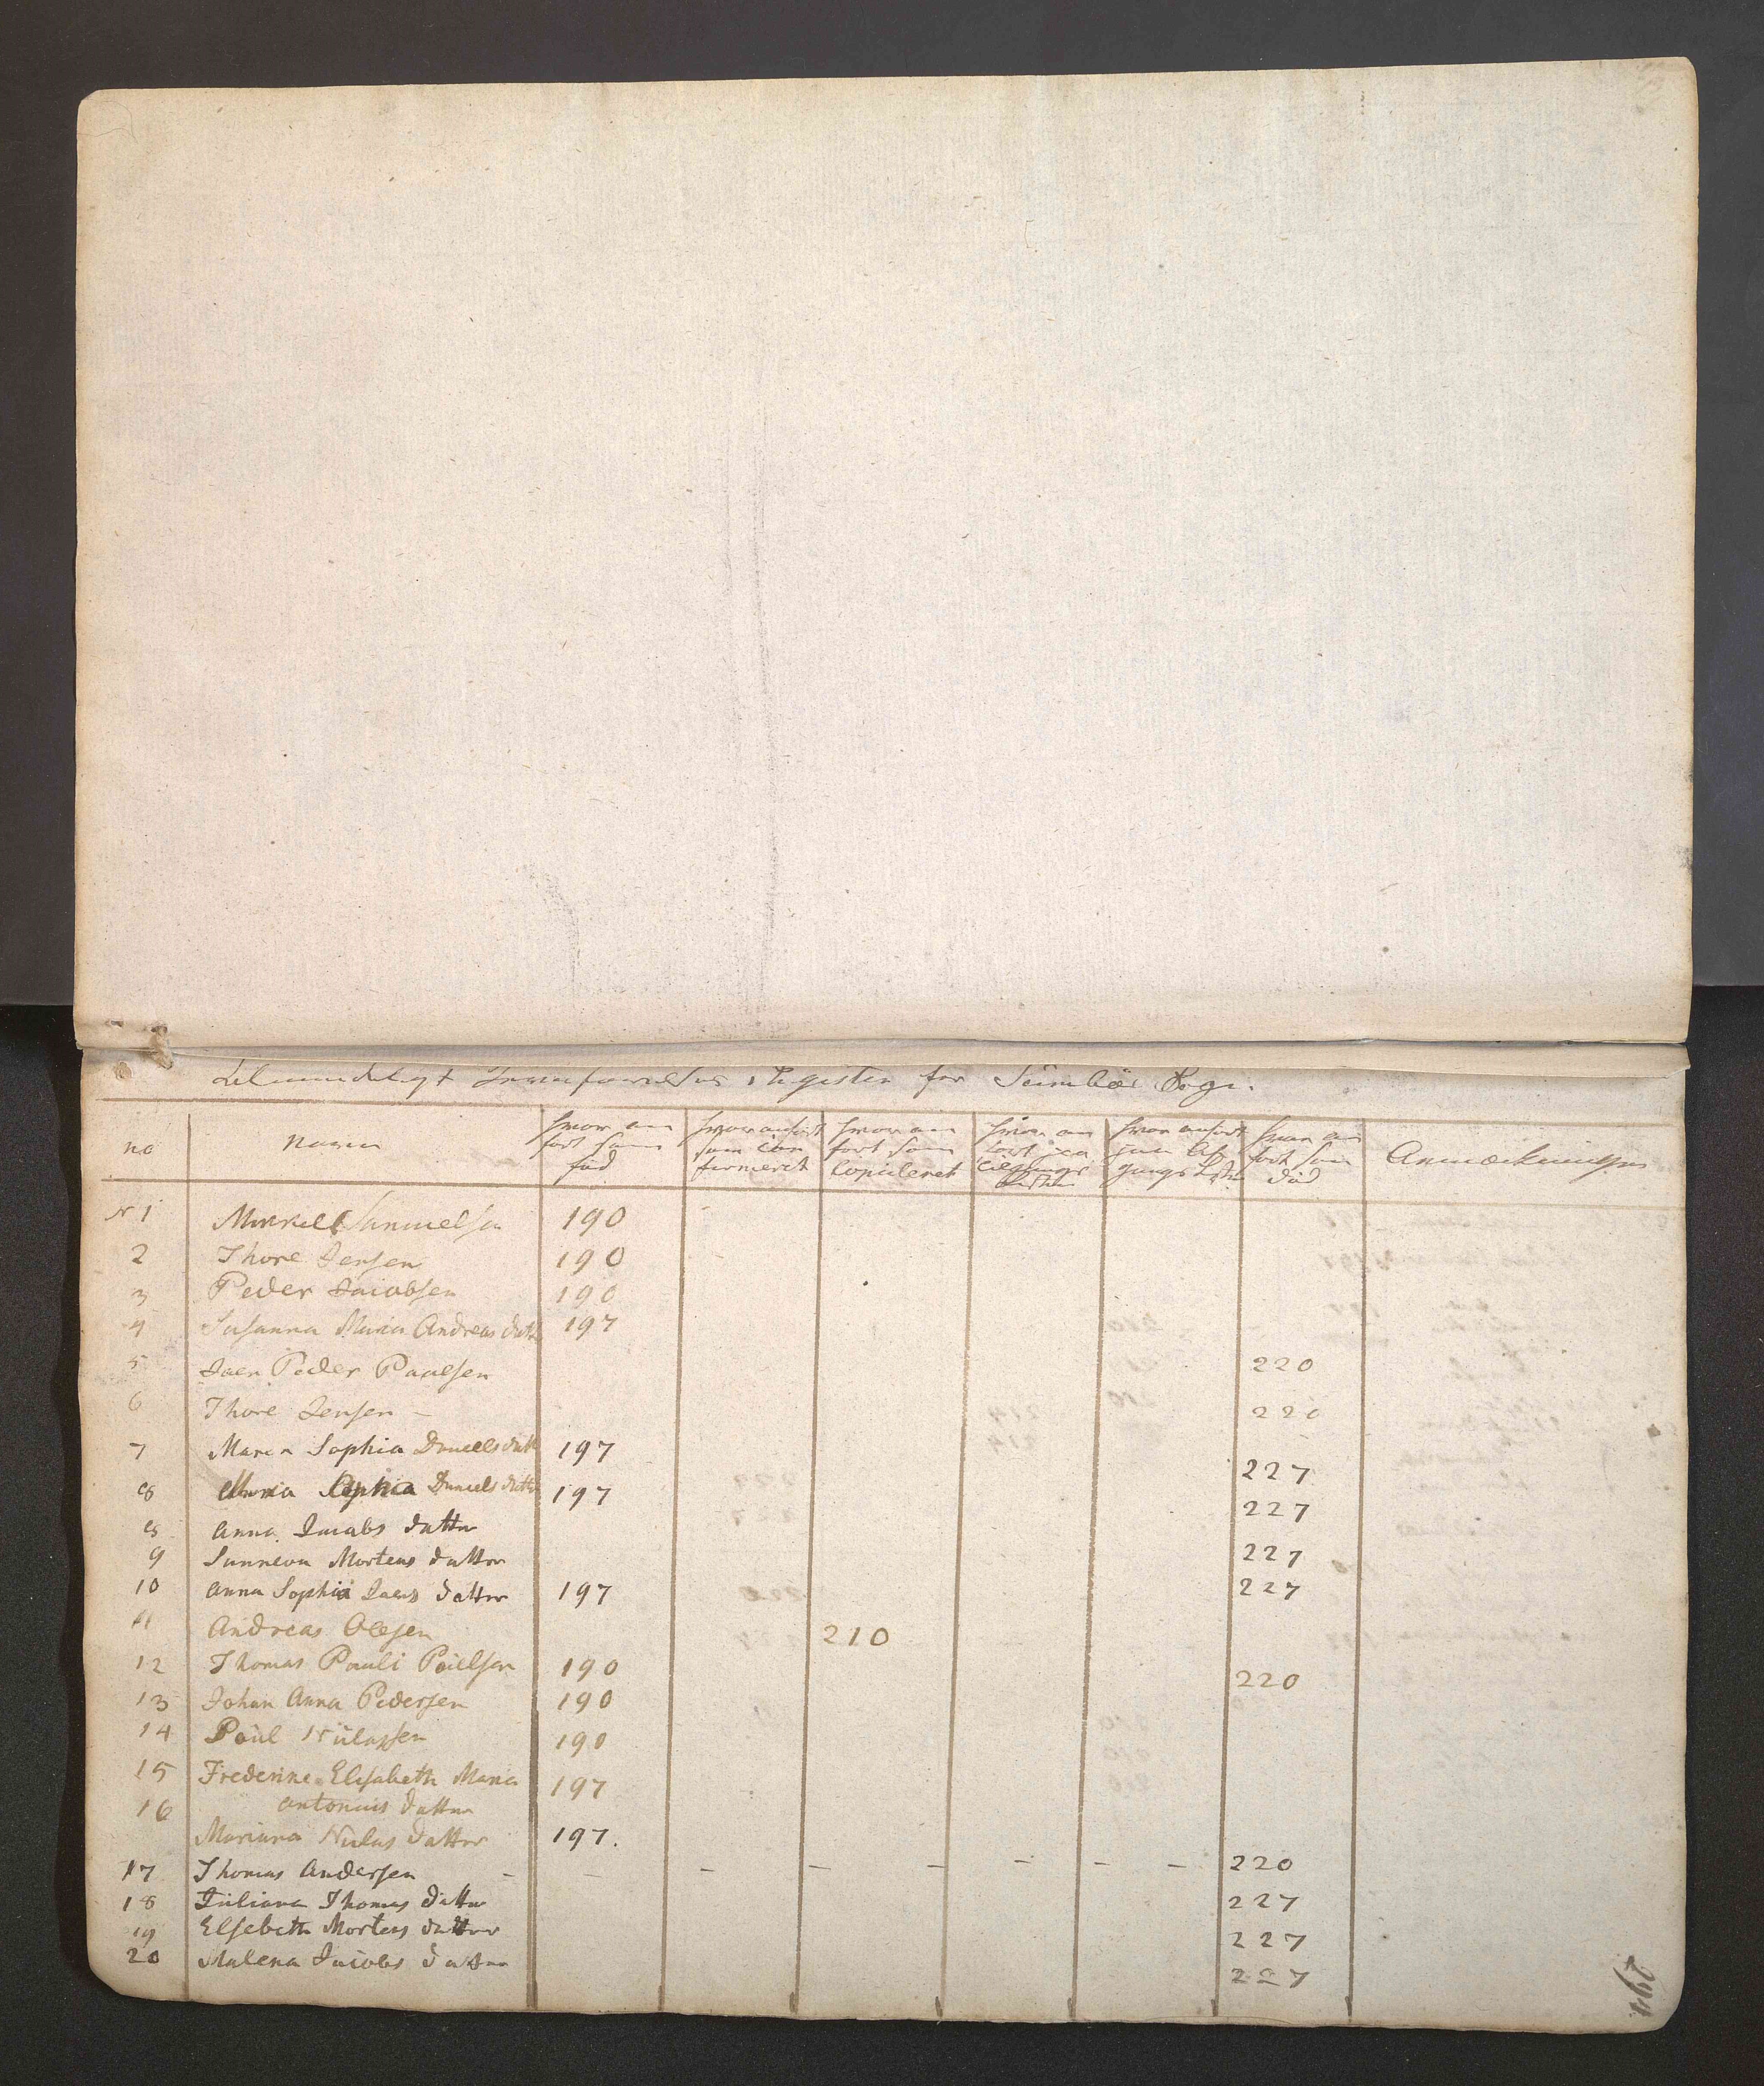 Almindeligt Jevnførelses Register for Sumbøe Sogn.
no Navn hvor an ført som fød hvor anført som con firmeret hvor an ført som Copuleret hvor an ført paa hvor anført paa Af gangs Listen hvor an ført som Død Anmærkninger
N 1 Mikkel Samuelsen 190
2 Thore Jensen 190
3 Peder Jacobsen 190
4 Susanna Maria Andreas datter 197
5 Joen Peder Paulsen 220
6 Thore Jensen - 220
7 Maren Sophia Daniels datt 197 227
8 Maria Sophia Daniels datter 197 227
8 Anna Jacobs datter 227
9 Sunneva Mortens datter 227
10 Anna Sophia Joens datter 197
11 Andreas Olesen 210
12 Thomas Pauli Poulsen 190 220
13 Johan Anna Pedersen 190
14 Poul Niclassen 190
15 Frederine Elisabeth Maria 197
16 Antonius datter
Mariana Niclas datter 197.
17 Thomas Andersen - - - - - - - 220
18 Juliana Thomas datter 227
19 Elsebeth Mortens datter 227
20 Malena Jacobs datter 227
294